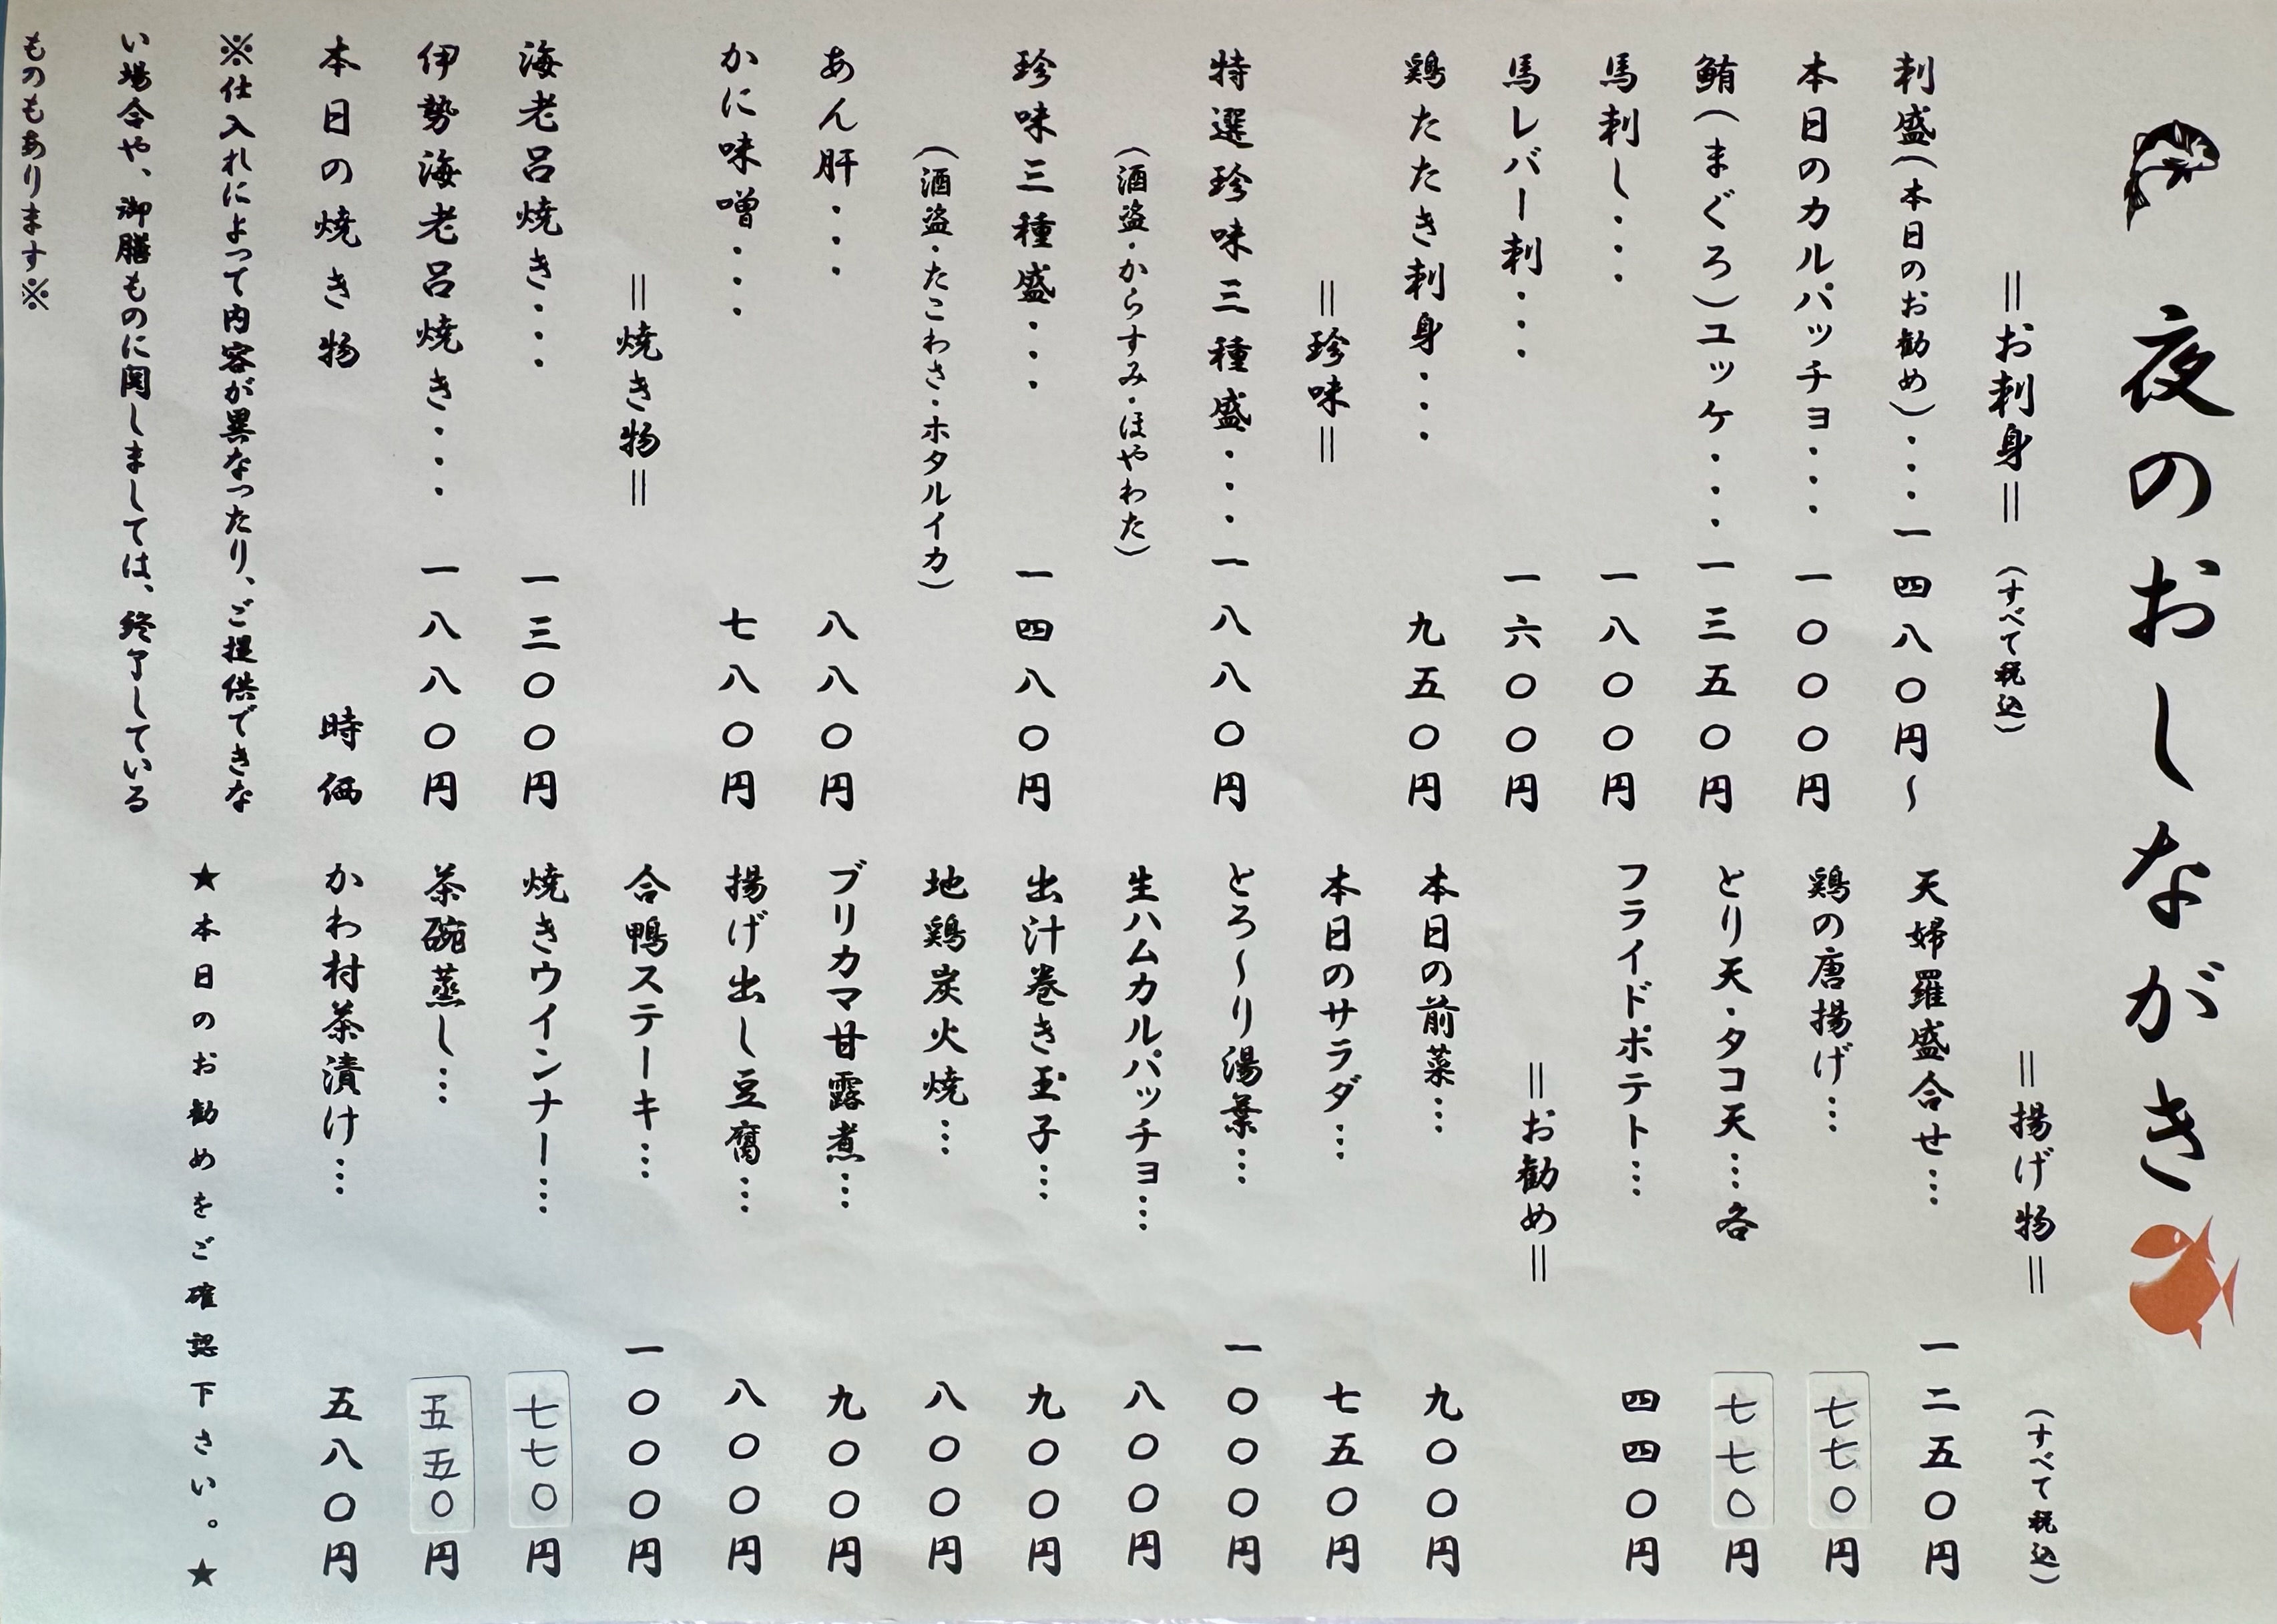 夜のおしながき
=お刺身= (すべて税込)
刺盛(本日のお勧め)・・・一四八〇円~
本日のカルパッチョ・・・一〇〇〇円
鮪(まぐろ)ユッケ・・・一三五〇円
馬刺し・・・一八〇〇円
馬レバー刺・・・一六〇〇円
鶏たたき刺身・・・九五〇円
=珍味=
特選珍味三種盛・・・一八八〇円
(酒盗・からすみ・ほやわた)
珍味三種盛・・・一四八〇円
(酒盗・たこわさ・ホタルイカ)
あん肝・・・八八〇円
かに味噌・・・七八〇円
=焼き物=
海老呂焼き・・・一三〇〇円
伊勢海老呂焼き・・・一八八〇円
本日の焼き物 時価
※仕入れによって内容が異なったり、ご提供できな
い場合や、御膳ものに関しましては、終了している
ものもあります※
=揚げ物= (すべて税込)
天婦羅盛合せ… 一二五〇円
鶏の唐揚げ… 七七〇円
とり天・タコ天…各 七七〇円
フライドポテト… 四四〇円
=お勧め=
本日の前菜… 九〇〇円
本日のサラダ… 七五〇円
とろ~り湯葉… 一〇〇〇円
生ハムカルパッチョ… 八〇〇円
出汁巻き玉子… 九〇〇円
地鶏炭火焼… 八〇〇円
ブリカマ甘露煮… 九〇〇円
揚げ出し豆腐… 八〇〇円
合鴨ステーキ… 一〇〇〇円
焼きウインナー… 七七〇円
茶碗蒸し… 五五〇円
かわ村茶漬け… 五八〇円
★本日のお勧めをご確認下さい。★